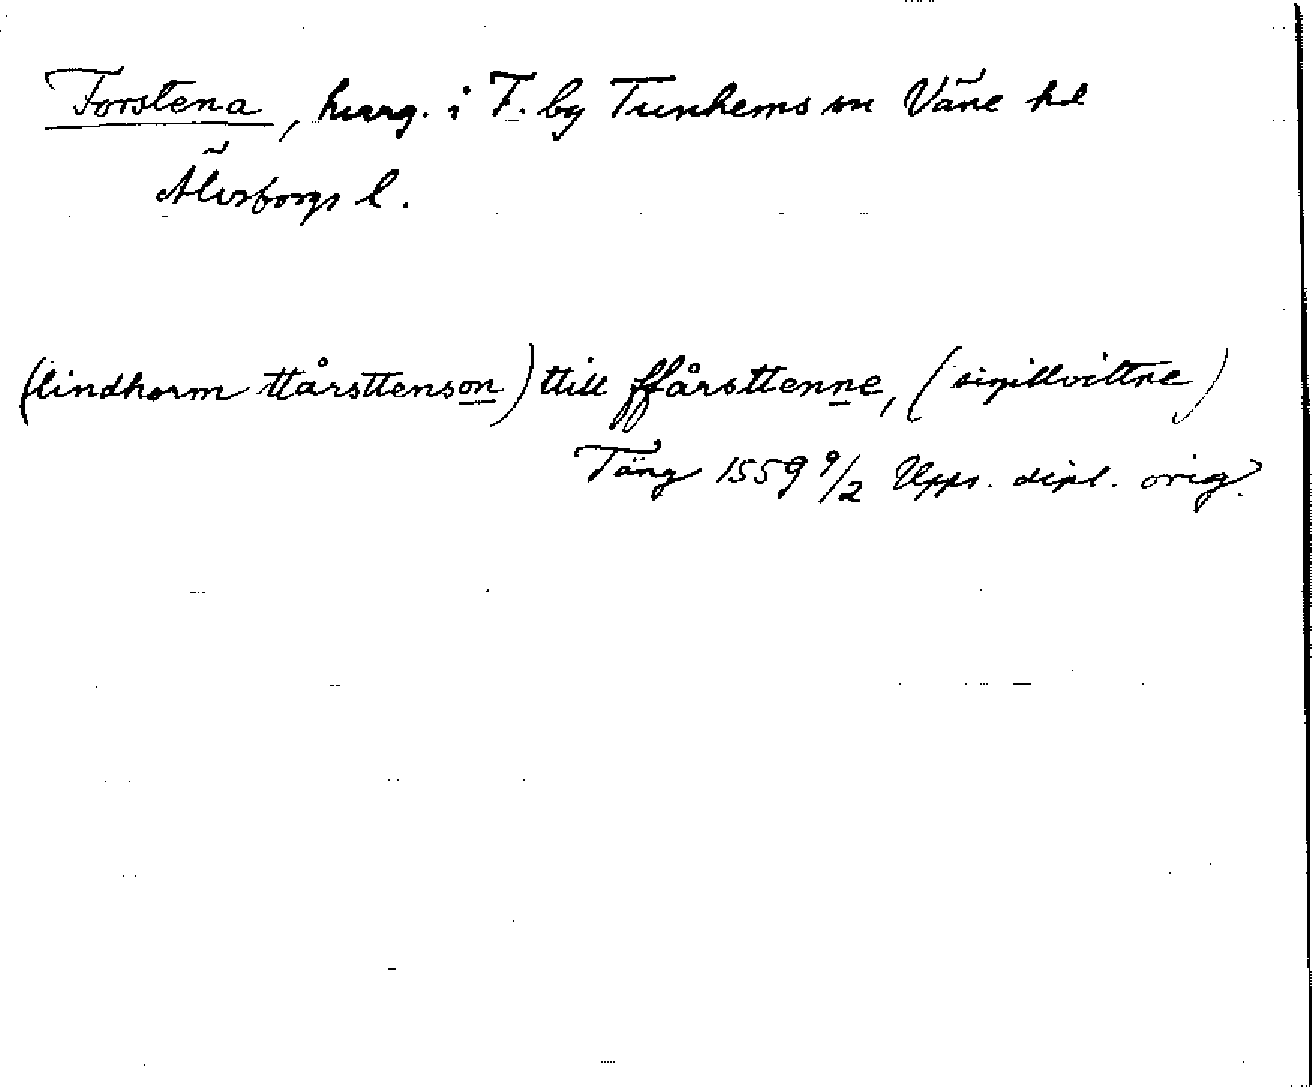 Forstena, herrg. i F. by Tunhems sn Väne hd
Älvsborgs l.
(lindhorm ttårsttenson) ttill ffårsttenne, (sigillvittne)
Täng 1559 9/2 Upps. dipl. orig.